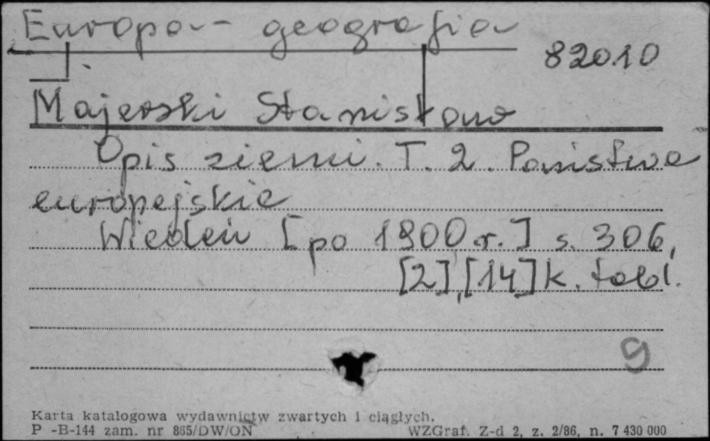 Europa - geografia
82010
Majerski Stanisław
Opis ziemi. T. 2. Państwa
europejskie
Wiedeń [po 1900 r.] s. 306,
[2], [14] k. tabl.
9
Karta katalogowa wydawnictw zwartych i ciągłych.
P -B-144 zam. nr 865/DW/ON WZGraf. Z-d 2, z. 2/86, n. 7 430 000